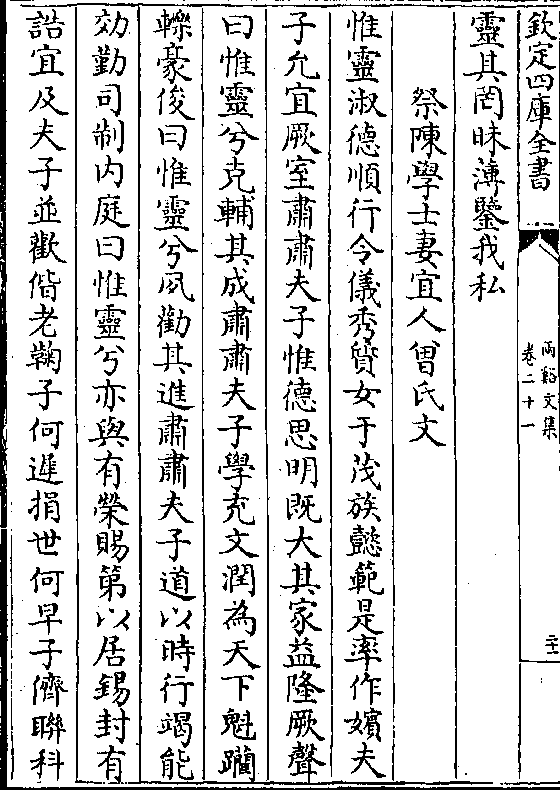 欽定四庫全書
兩谿文集
卷二十一
靈其罔昧薄鑒我私
祭陳學士妻宜人曾氏文
惟靈淑德順行令儀秀質女于茂族懿範是率作嬪夫
子允宜厥室肅肅夫子惟德思明既大其家益隆厥聲
曰惟靈兮克輔其成肅肅夫子學充文潤為天下魁躪
轢豪俊曰惟靈兮夙勸其進肅肅夫子道以時行竭能
効勤司制内庭曰惟靈兮亦與有榮賜第以居錫封有
誥宜及夫子並歡偕老鞠子何遲捐世何早子儕聯科